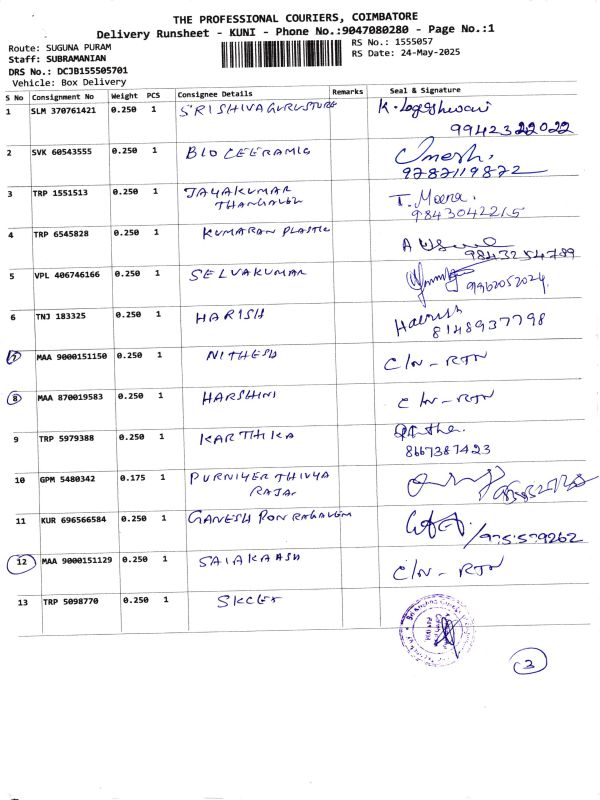 THE PROFESSIONAL COURIERS, COIMBATORE
Delivery Runsheet - KUNI - Phone No.:9047080280 - Page No.:1
Route: SUGUNA PURAM
RS No.: 1555057
Staff: SUBRAMANIAN
RS Date: 24-May-2025
DRS No.: DCJB155505701
Vehicle: Box Delivery
S No Consignment No Weight PCS Consignee Details Remarks Seal & Signature
1 SLM 370761421 0.250 1 SRI SHIVA GURUSTORE K. Logeshwari
9942322022
2 SVK 60543555 0.250 1 BIO CEERAMIC Umesh.
9787119872
3 TRP 1551513 0.250 1 JAYAKUMAR T. Meena.
THANGAVEL 9843042215
4 TRP 6545828 0.250 1 KUMARAN PLASTIC
9843254789
5 VPL 406746166 0.250 1 SELVAKUMAR
9962052024
6 TNJ 183325 0.250 1 HARISH Harish
8148937798
7 MAA 9000151150 0.250 1 NITHESH C/N - RTN
8 MAA 870019583 0.250 1 HARSHINI C/N - RTN
9 TRP 5979388 0.250 1 KARTHIKA
8667387423
10 GPM 5480342 0.175 1 PURNIYER THIVYA
RAJA
11 KUR 696566584 0.250 1 GANESH PON RAGAVEM
12 MAA 9000151129 0.250 1 SAIAKAASH C/N - RTN
13 TRP 5098770 0.250 1 SKCET
3